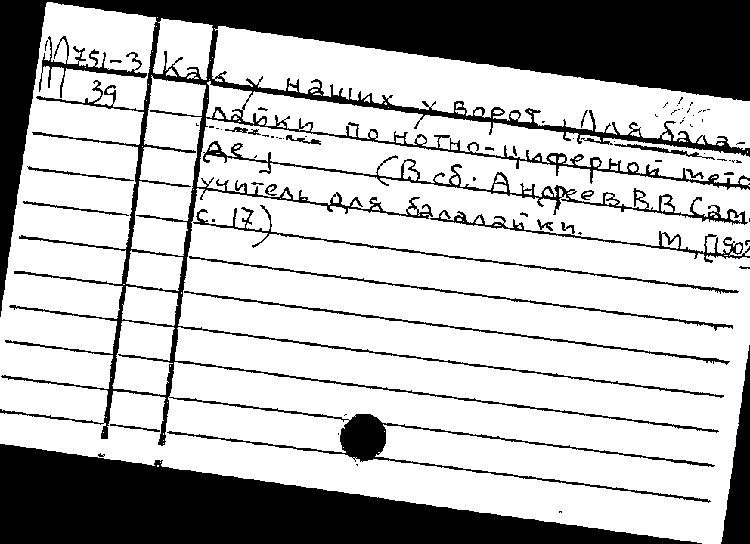 М 751-3 Как у наших у ворот. [Для бала-
39 лайки по нотно-циферной мето
де.] (В сб.: Андреев, В.В. Сам
учитель для балалайки. М., [190
с. 17.)